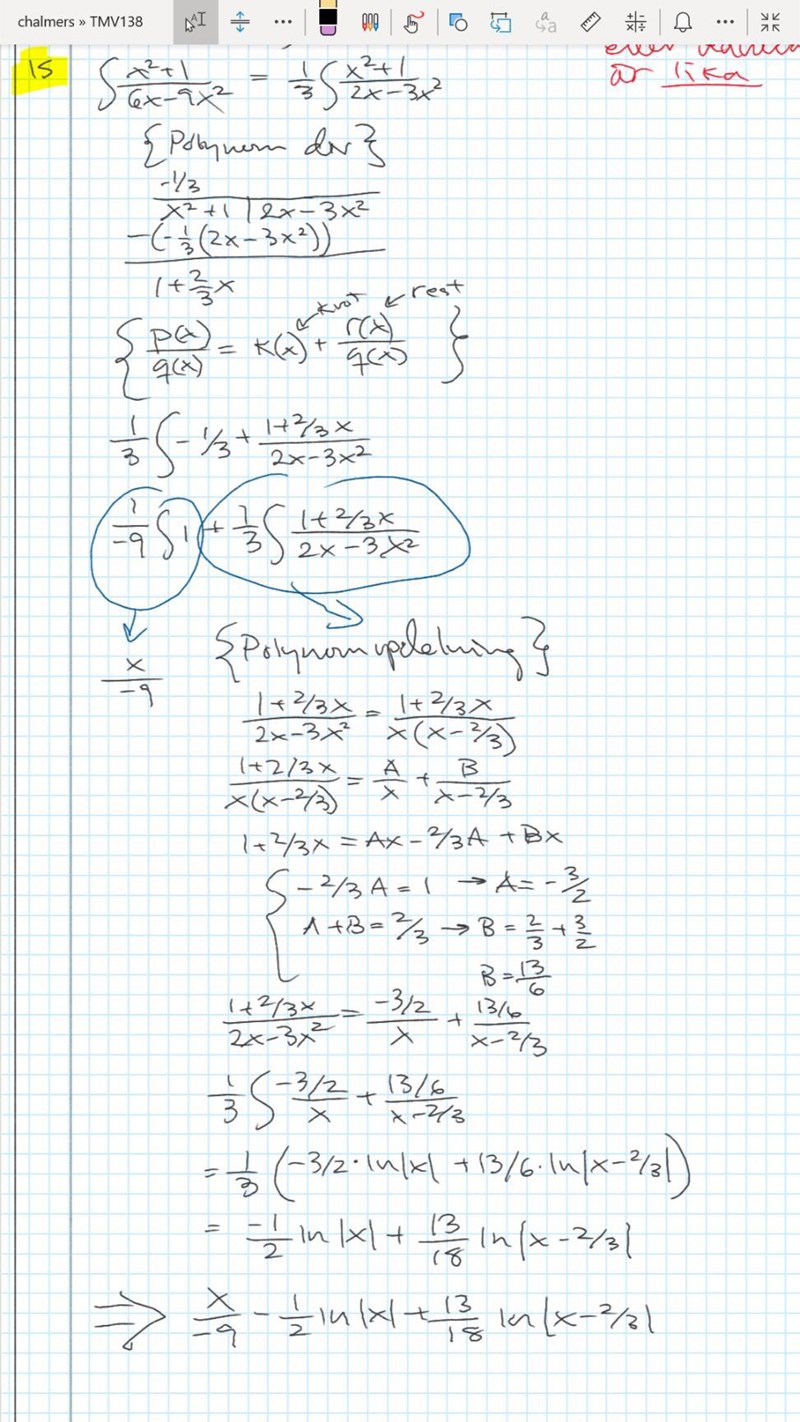 chalmers » TMV138
är lika
15 ∫ x²+1 / 6x-9x² = 1/3 ∫ x²+1 / 2x-3x²
{Polynom div}
-1/3
x²+1 | 2x-3x²
-(-1/3(2x-3x²))
1+2/3x
kvot rest
{p(x)/q(x) = k(x) + r(x)/q(x)}
1/3 ∫ -1/3 + 1+2/3x / 2x-3x²
1/-9 ∫ 1 + 1/3 ∫ 1+2/3x / 2x-3x²
x/-9
{Polynomuppdelning}
1+2/3x / 2x-3x² = 1+2/3x / x(x-2/3)
1+2/3x / x(x-2/3) = A/x + B/x-2/3
1+2/3x = Ax-2/3A+Bx
{-2/3A=1 → A=-3/2
A+B=2/3 → B=2/3+3/2
B=13/6
1+2/3x / 2x-3x² = -3/2 / x + 13/6 / x-2/3
1/3 ∫ -3/2 / x + 13/6 / x-2/3
= 1/3 (-3/2·ln|x| +13/6·ln|x-2/3|)
= -1/2 ln|x| + 13/18 ln|x-2/3|
⇒ x/-9 - 1/2 ln|x| + 13/18 ln|x-2/3|